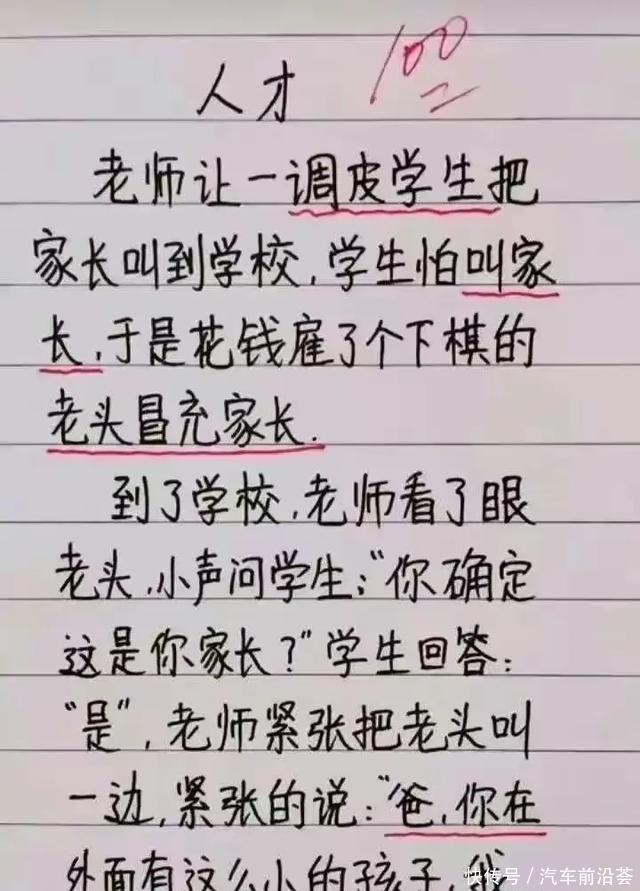 100
人才
老师让一调皮学生把
家长叫到学校,学生怕叫家
长,于是花钱雇了个下棋的
老头冒充家长.
到了学校,老师看了眼
老头,小声问学生:"你确定
这是你家长?"学生回答:
"是",老师紧张把老头叫
一边,紧张的说:"爸,你在
外面有这么小的孩子,
快传号/汽车前沿荟